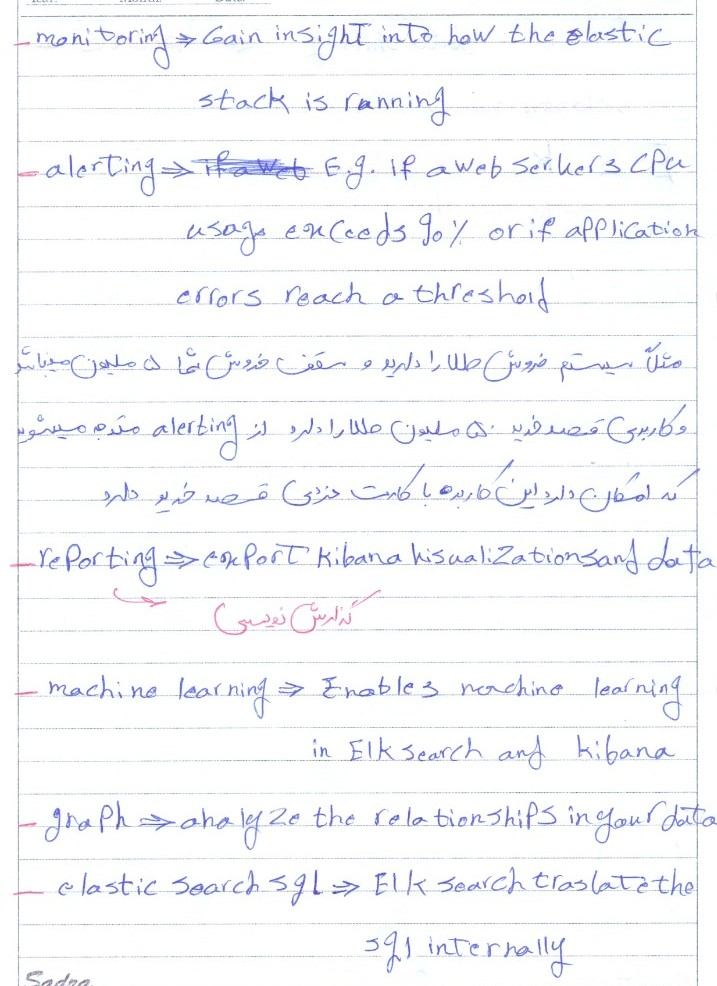 - monitoring ⇒ Gain insight into how the elastic
stack is running
- alerting ⇒ if a web E.g. if a web serkers CPU
usage exceeds 90% or if application
errors reach a threshold
مثلاً سیستم فروش طلا را دارید و سقف فروش شما ۵ ملیون میباشد
و کاربری قصد خرید ۵۰ ملیون طلا را دارد از alerting متوجه میشوید
که امکان دارد این کاربره با کارت دزدی قصد خرید دارد
- reporting ⇒ export kibana visualizations and data
گذارش نویسی
- machine learning ⇒ Enables machine learning
in Elk search and kibana
- graph ⇒ analyze the relationships in your data
- elastic search sql ⇒ Elk search traslate the
sql internally
Sadra